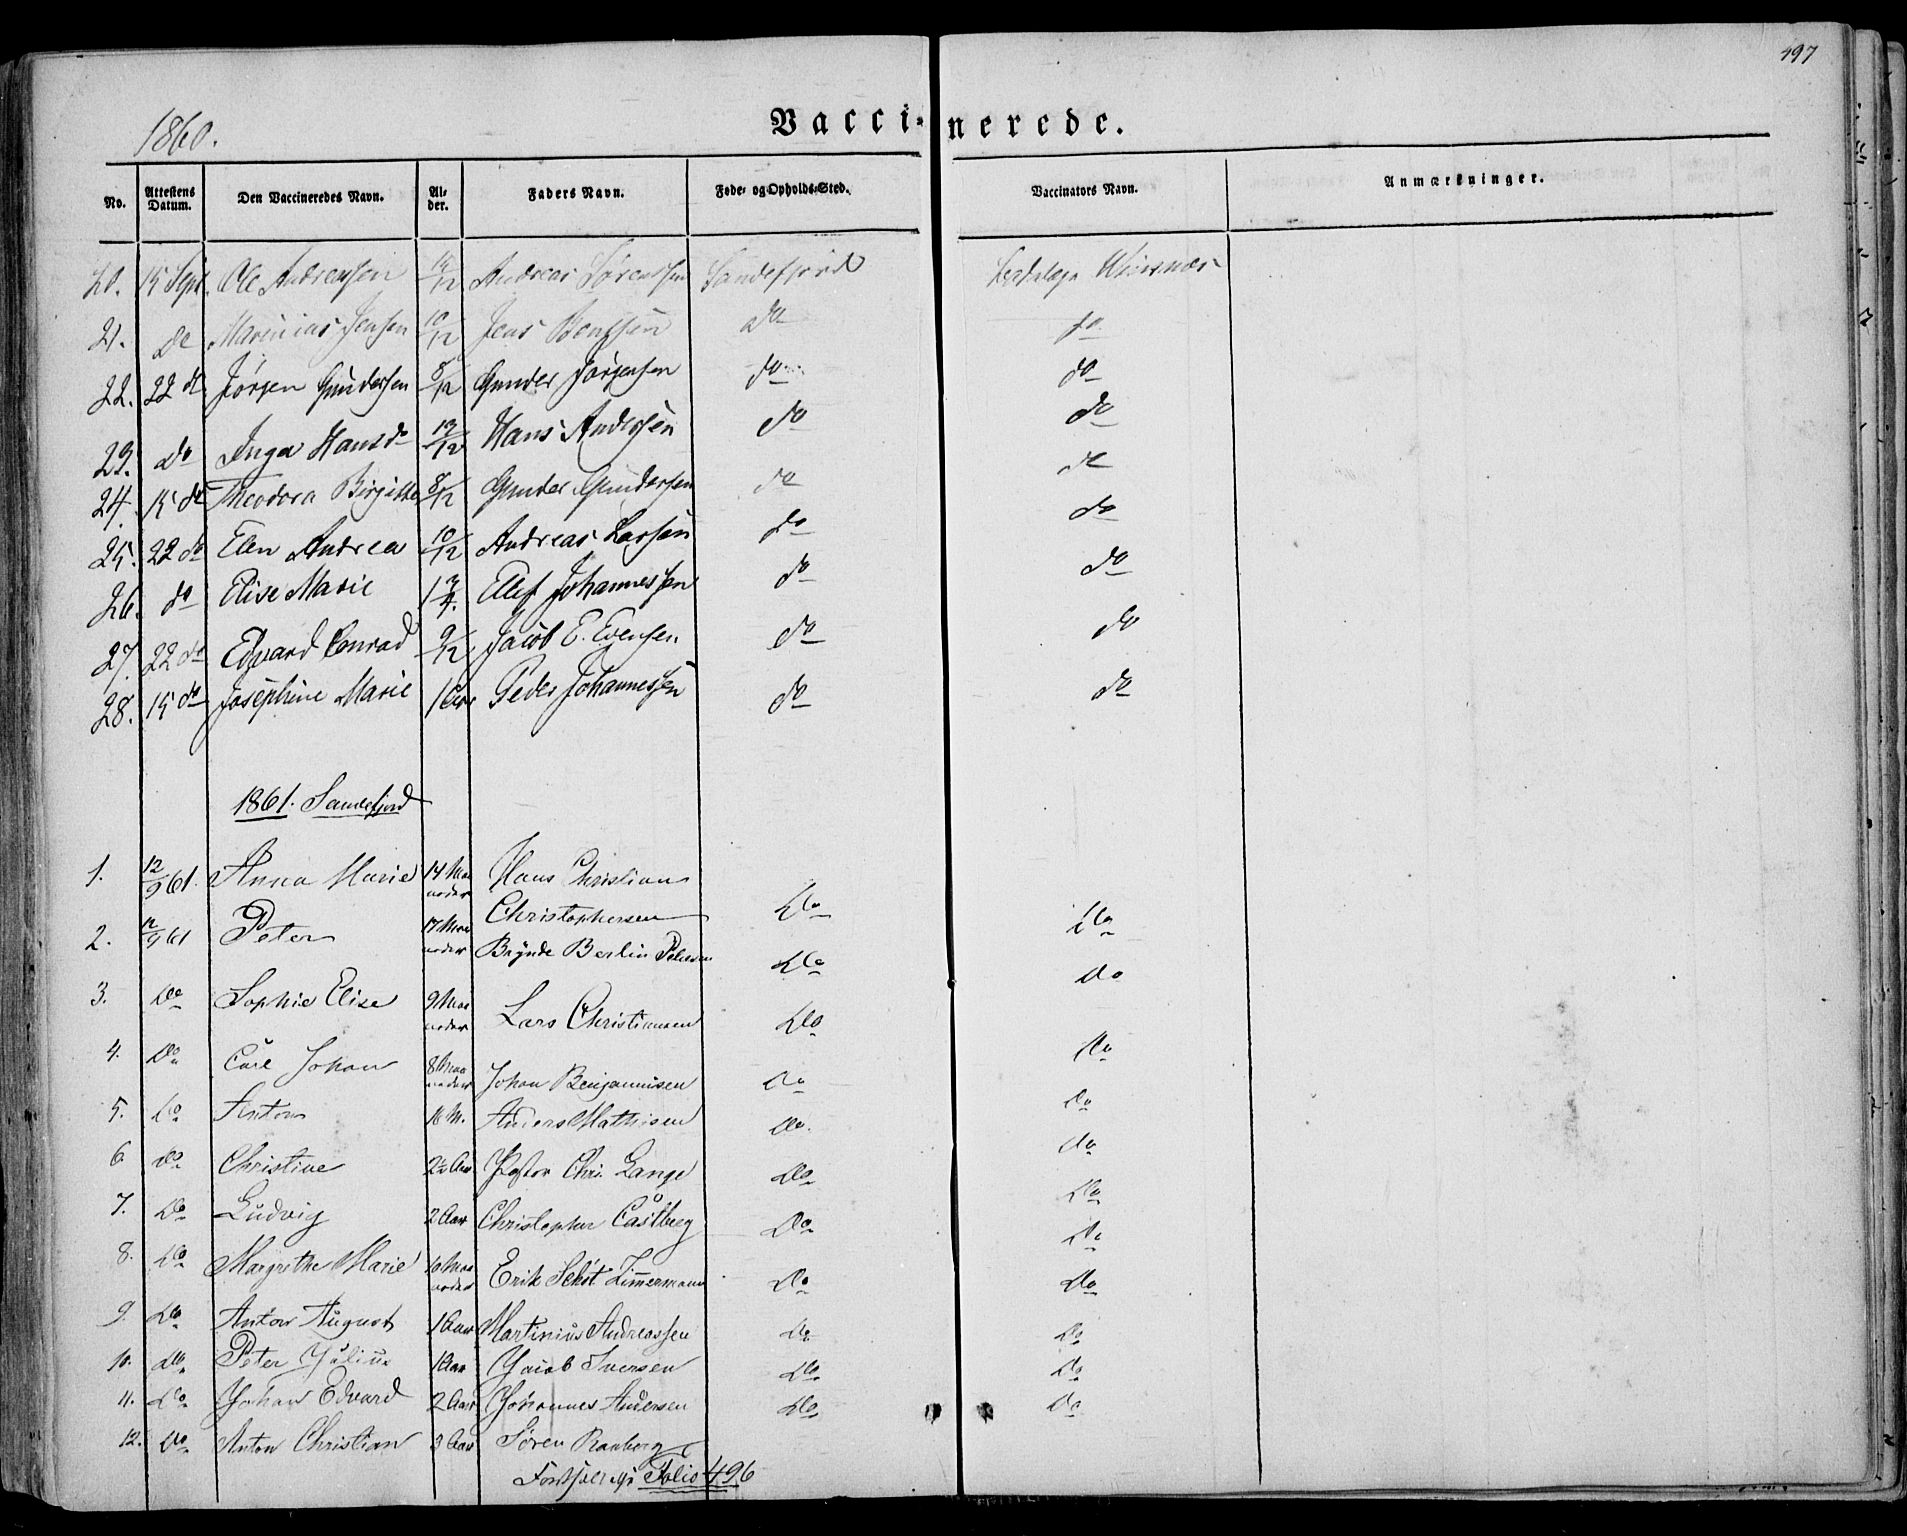 497
1860.
Vaccinerede.
No. Attestens Datum. Den Vaccineredes Navn. Alder. Faders Navn. Føde- og Opholds-Sted. Vaccinators Navn. Anmærkninger.
20. 15 Sept. Ole Andreassen 14/12 Andreas Sørenssen Sandefjord
21. do Marinius Jensen 10/12 Jens Bentsen do do
22. 22 do Jørgen Gundersen 8/12 Gunder Jørgensen do do
23. do Inga Hansd 13/12 Hans Andersen do do
24. 15 do Theodora Birgitte 8/12 Gunder Gundersen do do
25. 22 do Elen Andrea 10/12 Andreas Larssen do do
26. do Elise Marie 1 3/4. Ellef Johannessen do do
27. 22 do Edvard Conrad 9/12 Jacob E. Evensen do do
28. 15 do Josephine Marie 1 Aar Peder Johannessen do do
1861. Sandefjord
1. 12/9 61. Anna Marie 14 Maaneder Hans Christian
Christophersen Do Do
2. 12/9 61 Peter 17 Maaneder Brynde Berlin Petersen Do Do
3. Do Sophie Elise 9 Maaneder Lars Christiansen Do Do
4. Do Carl Johan 8 Maaneder Johan Benjaminsen Do Do
5. Do Anton 16 M. Anders Mathisen Do. Do
6 Do Christine 2½ Aar Pastor Chr. Lange Do Do
7. Do Ludvig 2 Aar Christopher Castberg Do Do
8. Do Margrethe Marie 10 Maaneder Erik Schøt Zimmermann Do Do
9. Do Anton August 1 Aar Martinius Andreassen Do Do
10. Do Peter Julius 1 Aar Jacob Iversen Do Do
11. Do Johan Edvard 2 Aar Johannes Andersen Do Do
12. Do Anton Christian 3 Aar Søren Ranberg
Fortsættes Folio 496